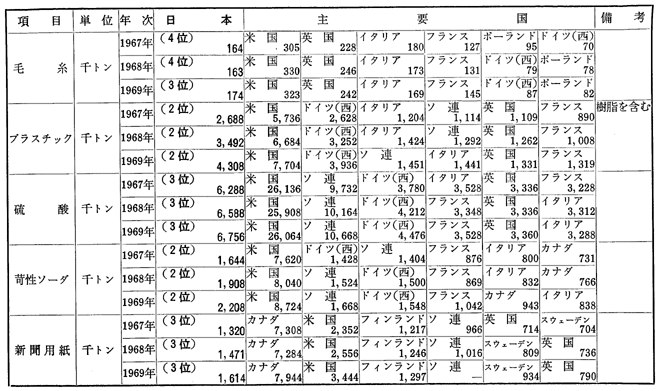 項目 単位 年次 日本 主要国 備考
毛糸 千トン 1967年 (4位) 164 米国 305 英国 228 イタリア 180 フランス 127 ポーランド 95 ドイツ(西) 70
1968年 (4位) 163 米国 330 英国 246 イタリア 173 フランス 131 ドイツ(西) 79 ポーランド 78
1969年 (3位) 174 米国 323 英国 242 イタリア 169 フランス 145 ドイツ(西) 87 ポーランド 82
プラスチック 千トン 1967年 (2位) 2,688 米国 5,736 ドイツ(西) 2,628 イタリア 1,204 ソ連 1,114 英国 1,109 フランス 890 樹脂を含む
1968年 (2位) 3,492 米国 6,684 ドイツ(西) 3,252 イタリア 1,424 ソ連 1,292 英国 1,262 フランス 1,008
1969年 (2位) 4,308 米国 7,704 ドイツ(西) 3,936 ソ連 1,451 イタリア 1,441 英国 1,331 フランス 1,319
硫酸 千トン 1967年 (3位) 6,288 米国 26,136 ソ連 9,732 ドイツ(西) 3,780 イタリア 3,528 英国 3,336 フランス 3,228
1968年 (3位) 6,588 米国 25,908 ソ連 10,164 ドイツ(西) 4,212 フランス 3,348 英国 3,336 イタリア 3,312
1969年 (3位) 6,756 米国 26,064 ソ連 10,668 ドイツ(西) 4,476 フランス 3,528 英国 3,360 イタリア 3,288
苛性ソーダ 千トン 1967年 (2位) 1,644 米国 7,620 ドイツ(西) 1,428 ソ連 1,404 フランス 876 イタリア 800 カナダ 731
1968年 (2位) 1,908 米国 8,040 ソ連 1,524 ドイツ(西) 1,500 フランス 869 イタリア 832 カナダ 766
1969年 (2位) 2,208 米国 8,724 ソ連 1,668 ドイツ(西) 1,548 フランス 1,042 カナダ 943 イタリア 838
新聞用紙 千トン 1967年 (3位) 1,320 カナダ 7,308 米国 2,352 フィンランド 1,217 ソ連 966 英国 714 スウェーデン 704
1968年 (3位) 1,471 カナダ 7,284 米国 2,556 フィンランド 1,246 ソ連 1,016 スウェーデン 809 英国 736
1969年 (3位) 1,614 カナダ 7,944 米国 3,444 フィンランド 1,297 ソ連 — スウェーデン 934 英国 790